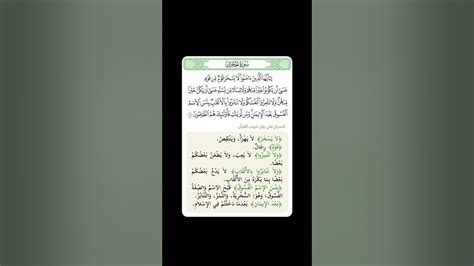 سُورَةُ الحُجُرَاتِ
يَٰٓأَيُّهَا ٱلَّذِينَ ءَامَنُوا۟ لَا يَسْخَرْ قَوْمٌ مِّن قَوْمٍ
عَسَىٰٓ أَن يَكُونُوا۟ خَيْرًا مِّنْهُمْ وَلَا نِسَآءٌ مِّن نِّسَآءٍ عَسَىٰٓ أَن يَكُنَّ خَيْرًا
مِّنْهُنَّ وَلَا تَلْمِزُوٓا۟ أَنفُسَكُمْ وَلَا تَنَابَزُوا۟ بِٱلْأَلْقَٰبِ بِئْسَ ٱلِٱسْمُ
ٱلْفُسُوقُ بَعْدَ ٱلْإِيمَٰنِ وَمَن لَّمْ يَتُبْ فَأُو۟لَٰٓئِكَ هُمُ ٱلظَّٰلِمُونَ ١١
السراج في بيان غريب القرآن
﴿لَا يَسْخَرْ﴾ لَا يَهْزَأْ، وَيَنْتَقِصْ.
﴿قَوْمٌ﴾ رِجَالٌ.
﴿وَلَا تَلْمِزُوا﴾ لَا يَعِبْ، وَلَا يَطْعَنْ بَعْضُكُمْ
بَعْضًا.
﴿وَلَا تَنَابَزُوا بِالْأَلْقَابِ﴾ لَا يَدْعُ بَعْضُكُمْ
بَعْضًا بِمَا يَكْرَهُ مِنَ الْأَلْقَابِ.
﴿بِئْسَ الِاسْمُ الْفُسُوقُ﴾ قَبُحَ الِاسْمُ وَالصِّفَةُ
الْفُسُوقُ، وَهُوَ: السُّخْرِيَةُ، وَاللَّمْزُ، وَالتَّنَابُزُ.
﴿بَعْدَ الْإِيمَانِ﴾ بَعْدَمَا دَخَلْتُمْ فِي الْإِسْلَامِ.